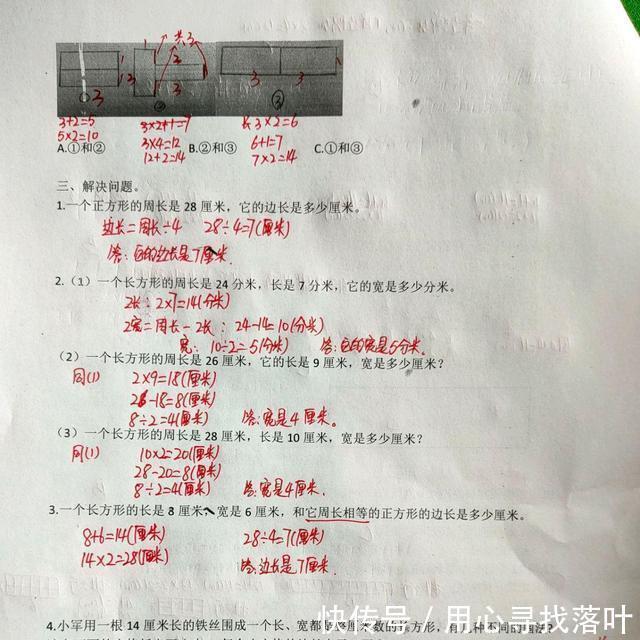 共3
1 3 ① 3
1 2 3 3 ②
3 3 1 ③
3+2=5 3×2+1=7 长3×2=6
5×2=10 3×4=12 6+1=7
12+2=14 7×2=14
A.①和② B.②和③ C.①和③
三、解决问题。
1.一个正方形的周长是 28 厘米，它的边长是多少厘米。
边长=周长÷4 28÷4=7(厘米)
答:它的边长是7厘米.
2.（1）一个长方形的周长是 24 分米，长是 7 分米，它的宽是多少分米。
2长: 2×7=14(分米)
2宽=周长-2长: 24-14=10(分米)
宽: 10÷2=5(分米) 答:它的宽是5分米。
（2）一个长方形的周长是 26 厘米，它的长是 9 厘米，宽是多少厘米？
同(1) 2×9=18(厘米)
26-18=8(厘米)
8÷2=4(厘米) 答:宽是4厘米。
（3）一个长方形的周长是 28 厘米，长是 10 厘米，宽是多少厘米？
同(1) 10×2=20(厘米)
28-20=8(厘米)
8÷2=4(厘米) 答:宽是4厘米.
3.一个长方形的长是 8 厘米、宽是 6 厘米，和它周长相等的正方形的边长是多少厘米。
8+6=14(厘米) 28÷4=7(厘米)
14×2=28(厘米) 答:边长是7厘米.
4.小军用一根 14 厘米长的铁丝围成一个长、宽都是整厘米数的长方形，有几种不同的围法？
快传号 / 用心寻找落叶